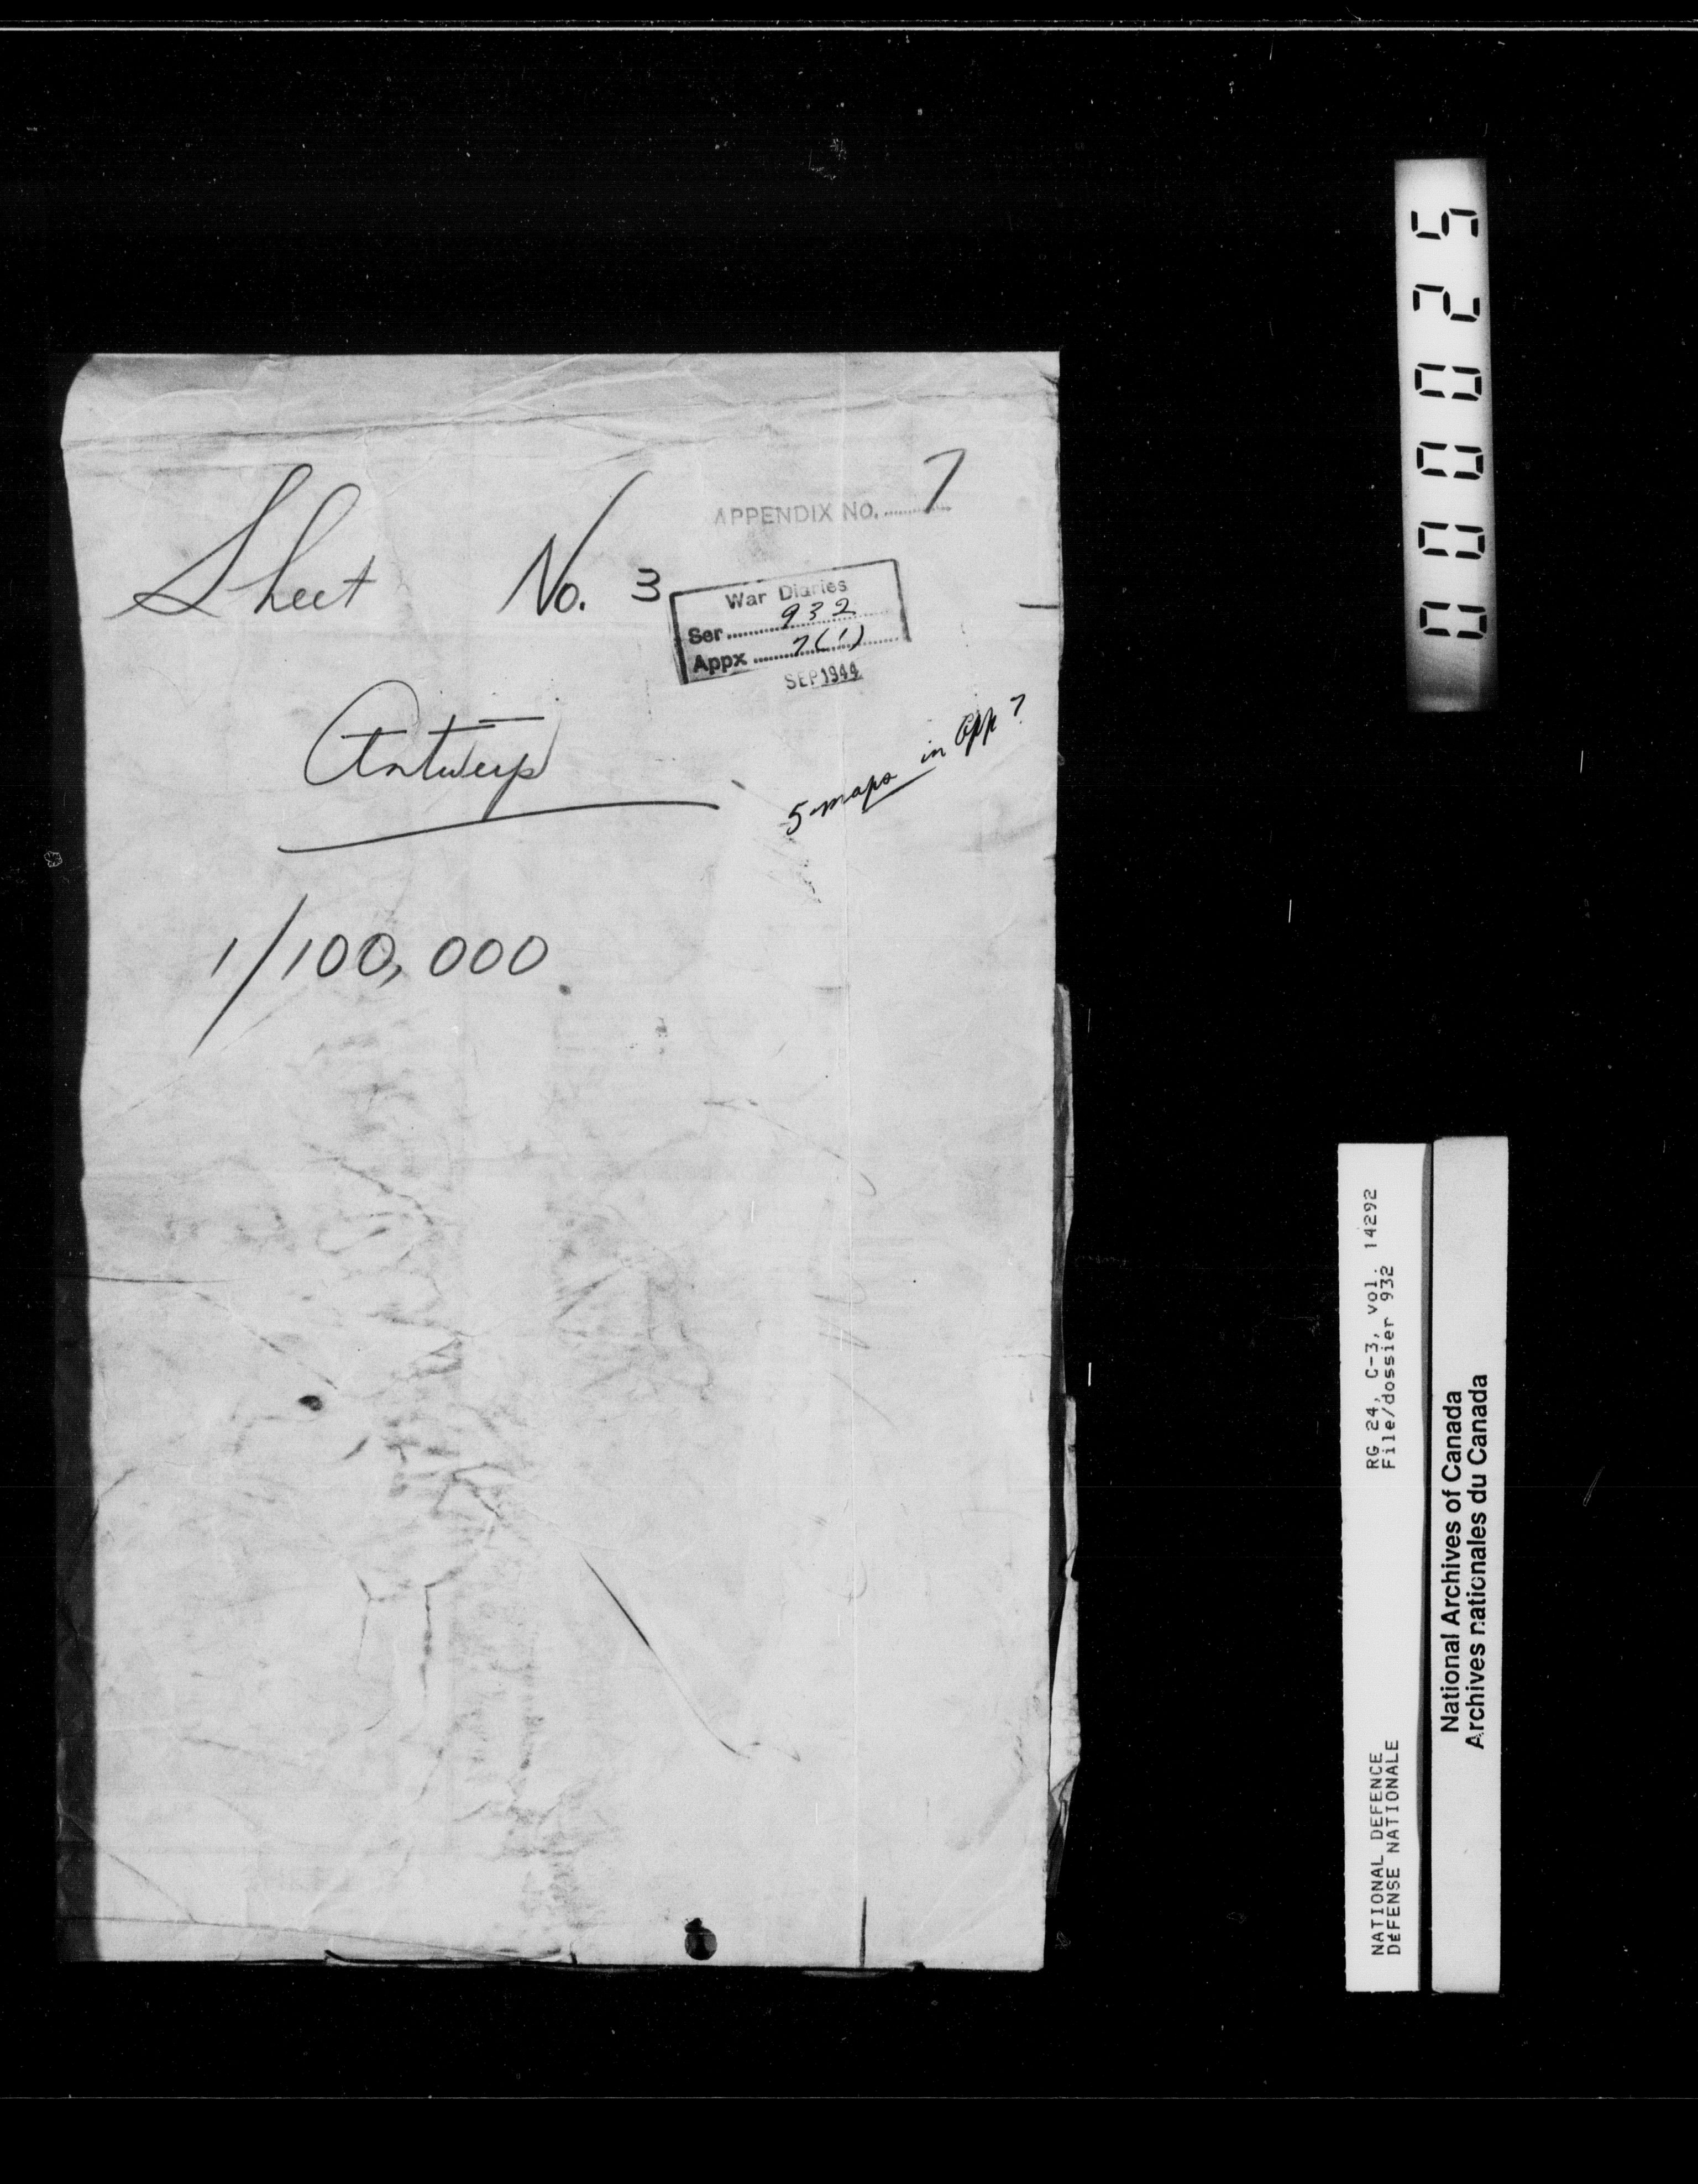 APPENDIX NO. 7
Sheet No. 3
War Diaries
Ser 932
Appx 7(1)
SEP 1944
Antwerp
5 maps in App 7
1/100,000
000025
RG 24, C-3, vol. 14292
File/dossier 932
NATIONAL DEFENCE
DÉFENSE NATIONALE
National Archives of Canada
Archives nationales du Canada